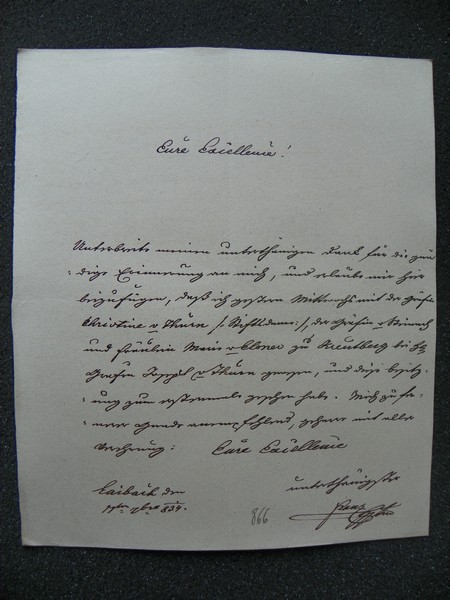 Eure Excellenz!
Unterbreite meinen unterthänigen Dank für die gnä-
dige Erinnerung an mich, und erlaube mir hier
beizufügen, daß ich gestern Mittwochs mit der Gräfin
Christine v Thurn /: Stiftsdame :/, der Gräfin v
und Fräulein v zu Kreutberg bei H
Grafen v Thurn gewesen, und diese Besitz-
ung zum erstenmale gesehen habe. Mich zu fe-
nerer Gnade anempfehlend, geharre mit aller
Verehrung: Eure Excellenz
unterthänigster
Laibach den
834.
Franz
866